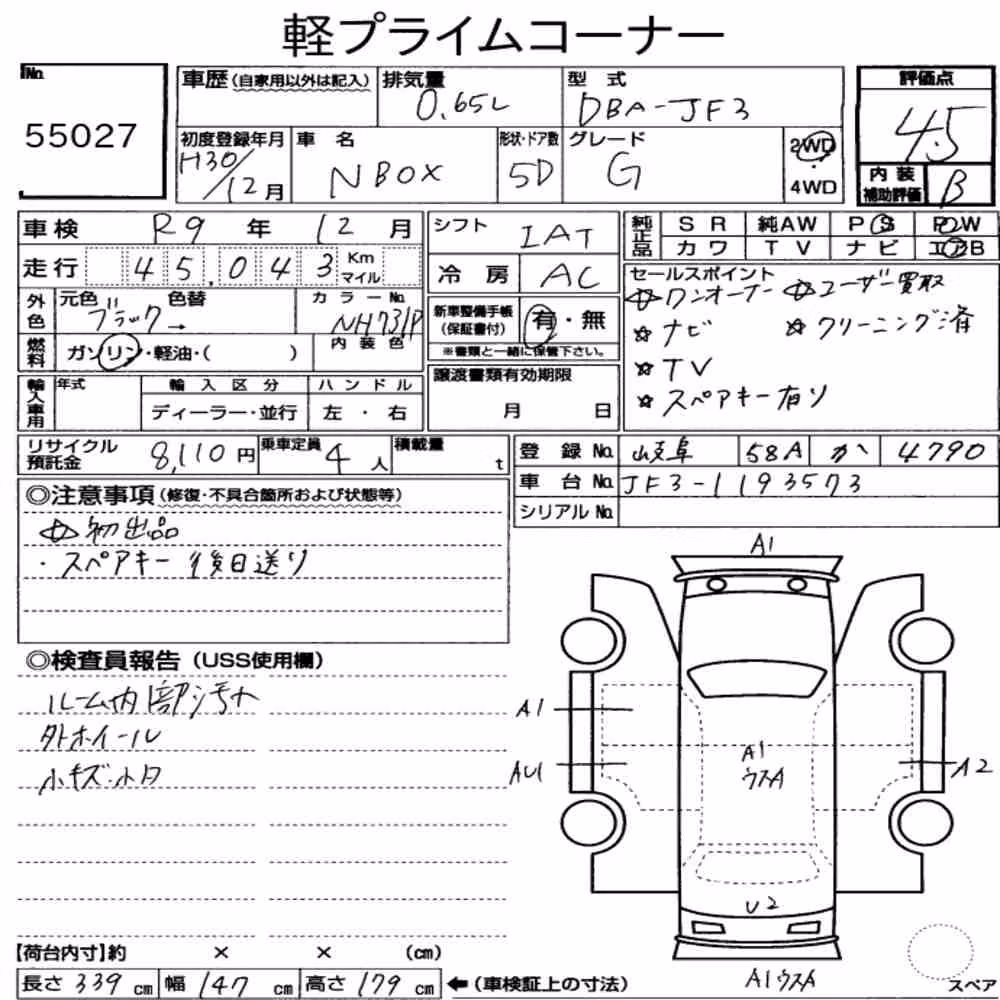 軽プライムコーナー
No.
55027
車歴 (自家用以外は記入)
排気量
0.65L
型式
DBA-JF3
評価点
4.5
初度登録年月
H30/12月
車名
N BOX
形状・ドア数
5D
グレード
G
2WD
・
4WD
内装
補助評価
B
車検 R9年 12月
走行 45,043 Km
マイル
シフト
IAT
冷房 AC
純正品
SR 純AW PS PW
カワ TV ナビ エアB
外色
元色 ブラック
色替 →
カラーNo.
NH731P
新車整備手帳
(保証書付)
有・無
※書類と一緒に保管下さい。
セールスポイント
☆ワンオーナー ☆ユーザー買取
☆ナビ ☆クリーニング済
☆TV
☆スペアキー有り
燃料
ガソリン・軽油・( )
内装色
輸入車用
年式
輸入区分
ディーラー・並行
ハンドル
左・右
譲渡書類有効期限
月 日
リサイクル
預託金
8,110円
乗車定員
4人
積載量
t
登録No. 岐阜 58A か 4790
車台No. JF3-1193573
シリアルNo.
◎注意事項 (修復・不具合箇所および状態等)
☆初出品
・スペアキー 後日送り
◎検査員報告 (USS使用欄)
ルーム内部汚れ
外ホイール
小キズ・小凹
A1
A1
AU1
A1
ウスA
A2
U2
A1ウスA
【荷台内寸】約 × × (cm)
長さ 339cm 幅 147cm 高さ 179cm ←(車検証上の寸法)
スペア